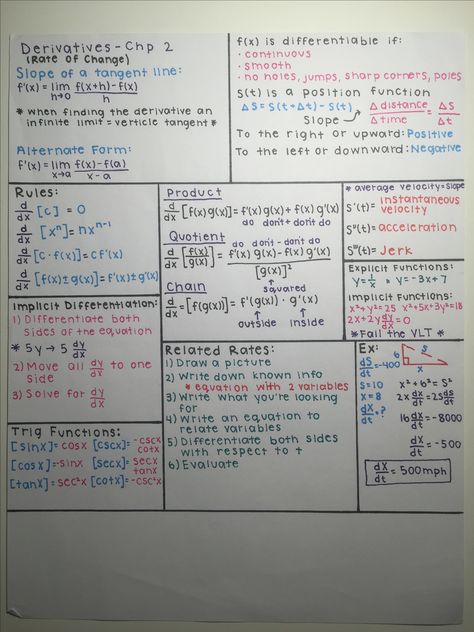 Derivatives - Chp 2
(Rate of Change)
Slope of a tangent line:
f'(x) = lim h→0 f(x+h)-f(x) / h
* when finding the derivative an
infinite limit = verticle tangent *
Alternate Form:
f'(x) = lim x→a f(x)-f(a) / x-a
f(x) is differentiable if:
· continuous
· smooth
· no holes, jumps, sharp corners, poles
S(t) is a position function
ΔS = S(t+Δt) - S(t)
Slope → Δ distance / Δ time = ΔS / Δt
To the right or upward: Positive
To the left or downward: Negative
Rules:
d/dx [c] = 0
d/dx [xⁿ] = nxⁿ⁻¹
d/dx [c·f(x)] = cf'(x)
d/dx [f(x)±g(x)] = f'(x)±g'(x)
Product
d/dx [f(x)g(x)] = f'(x)g(x) + f(x)g'(x)
do don't + don't do
Quotient
do don't - don't do
d/dx [f(x)/g(x)] = f'(x)g(x) - f(x)g'(x) / [g(x)]²
squared
Chain
d/dx = [f(g(x))] = f'(g(x)) · g'(x)
outside inside
* average velocity = slope
S'(t) = instantaneous
velocity
S''(t) = acceleration
S'''(t) = Jerk
Explicit Functions:
y = 1/x y = -3x+7
Implicit Functions:
x²+y²=25 x²+5x+3y²=18
2x+2y dy/dx = 0
* Fail the VLT *
Implicit Differentiation:
1) Differentiate both
sides of the equation
* 5y → 5 dy/dx
2) Move all dy/dx to one
side
3) Solve for dy/dx
Related Rates:
1) Draw a picture
2) Write down known info
* equation with 2 variables
3) Write what you're looking
for
4) Write an equation to
relate variables
5) Differentiate both sides
with respect to t
6) Evaluate
Ex:
6 S
x
dS/dt = -400
S = 10
x = 8
dX/dt = ?
x² + 6² = S²
2x dx/dt = 2S ds/dt
16 dx/dt = -8000
dX/dt = -500
dX/dt = 500mph
Trig Functions:
[sinx] = cosx [cscx] = -cscx cotx
[cosx] = -sinx [secx] = secx tanx
[tanx] = sec²x [cotx] = -csc²x